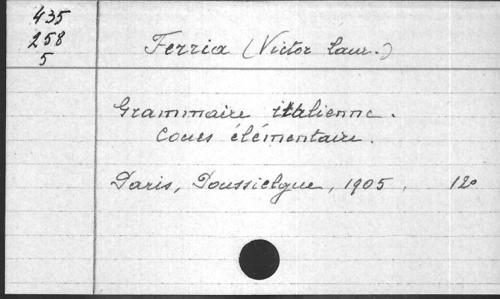 435
258
5
Ferria (Victor Laur.)
Grammaire italienne.
Cours élémentaire.
Paris, Poussielgue, 1905. 12°